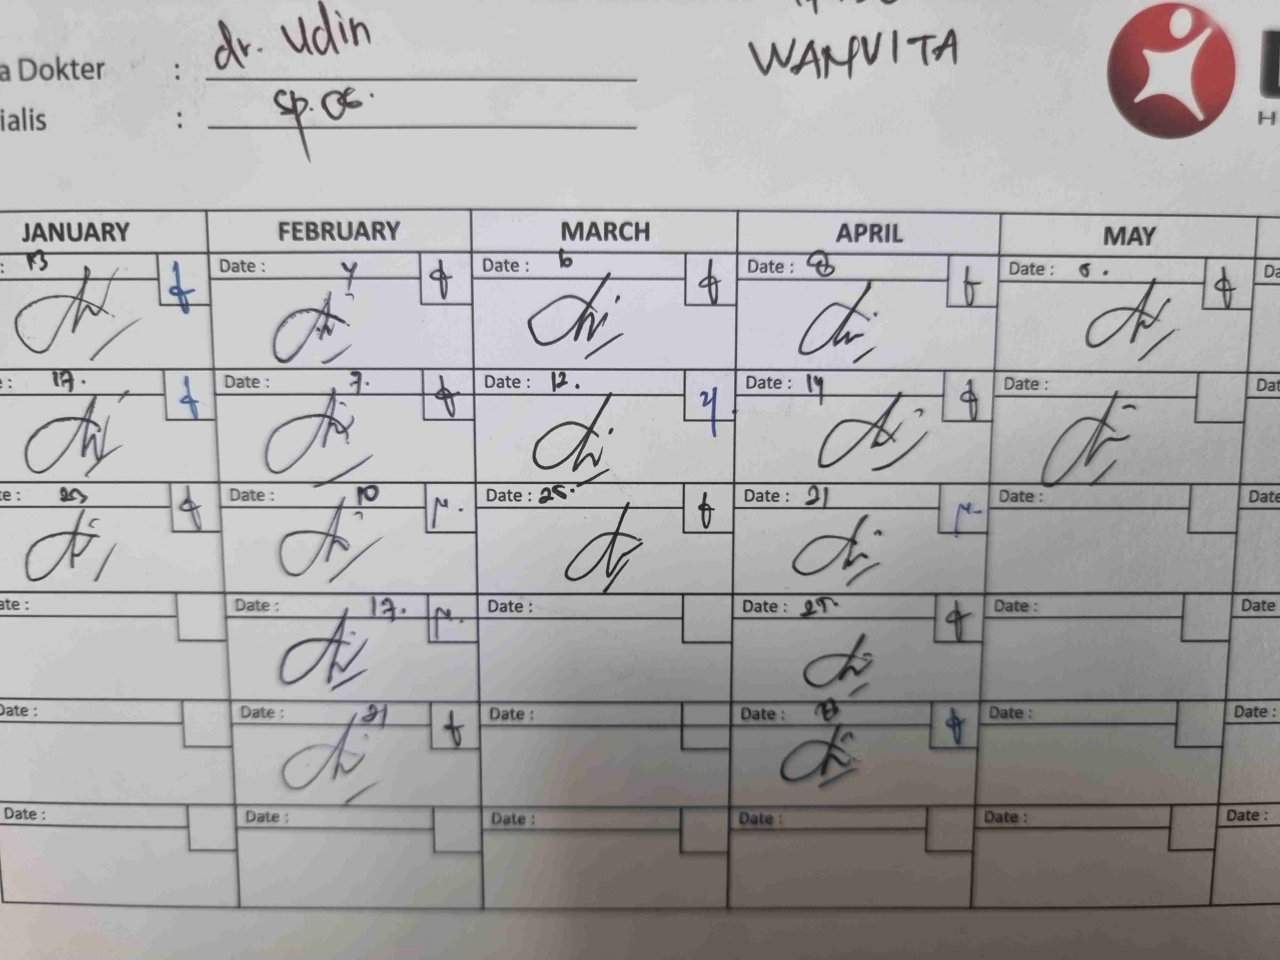 a Dokter : dr. Udin
ialis : sp. OG.
WAMVITA
H
JANUARY FEBRUARY MARCH APRIL MAY
: 13 Date : 4 Date : 6 Date : 8 Date : 5. Da
e : 17. Date : 7. Date : 12. Date : 14 Date : Dat
te : 23 Date : 10 Date : 25. Date : 21 Date : Date
ate : Date : 17. Date : Date : 25. Date : Date
Date : Date : 21 Date : Date : Date : Date :
Date : Date : Date : Date : Date : Date :